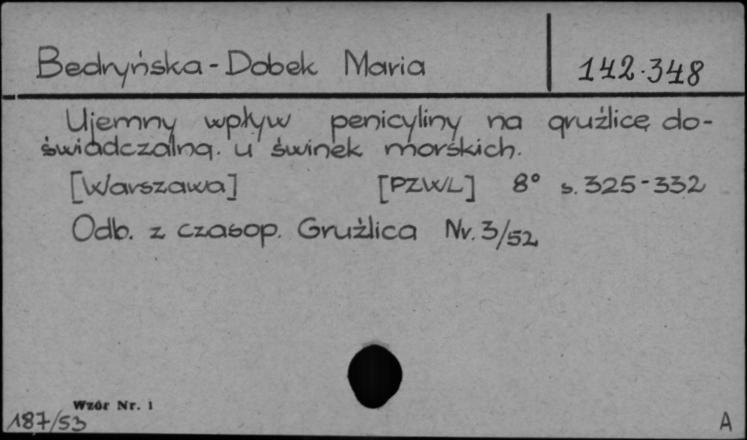 Bedryńska-Dobek Maria
142.348
Ujemny wpływ penicyliny na gruźlicę do-
świadczalną. u świnek morskich.
[Warszawa] [PZWL] 8° s. 325-332
Odb. z czasop. Gruźlica Nr. 3/52
Wzór Nr. 1
187/53
A